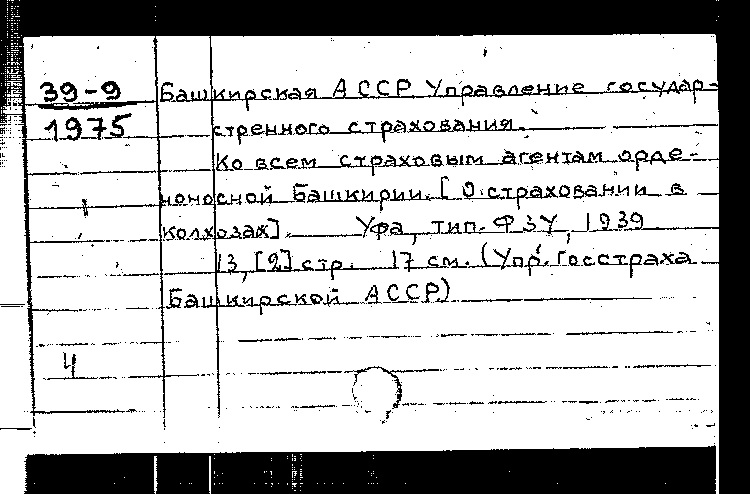 39-9 Башкирская АССР. Управление государ-
1975 ственного страхования.
Ко всем страховым агентам орде-
ноносной Башкирии. [О страховании в
колхозах]. Уфа, тип. ФЗУ, 1939
13, [2] стр. 17 см. (Упр. Госстраха
Башкирской АССР)
4